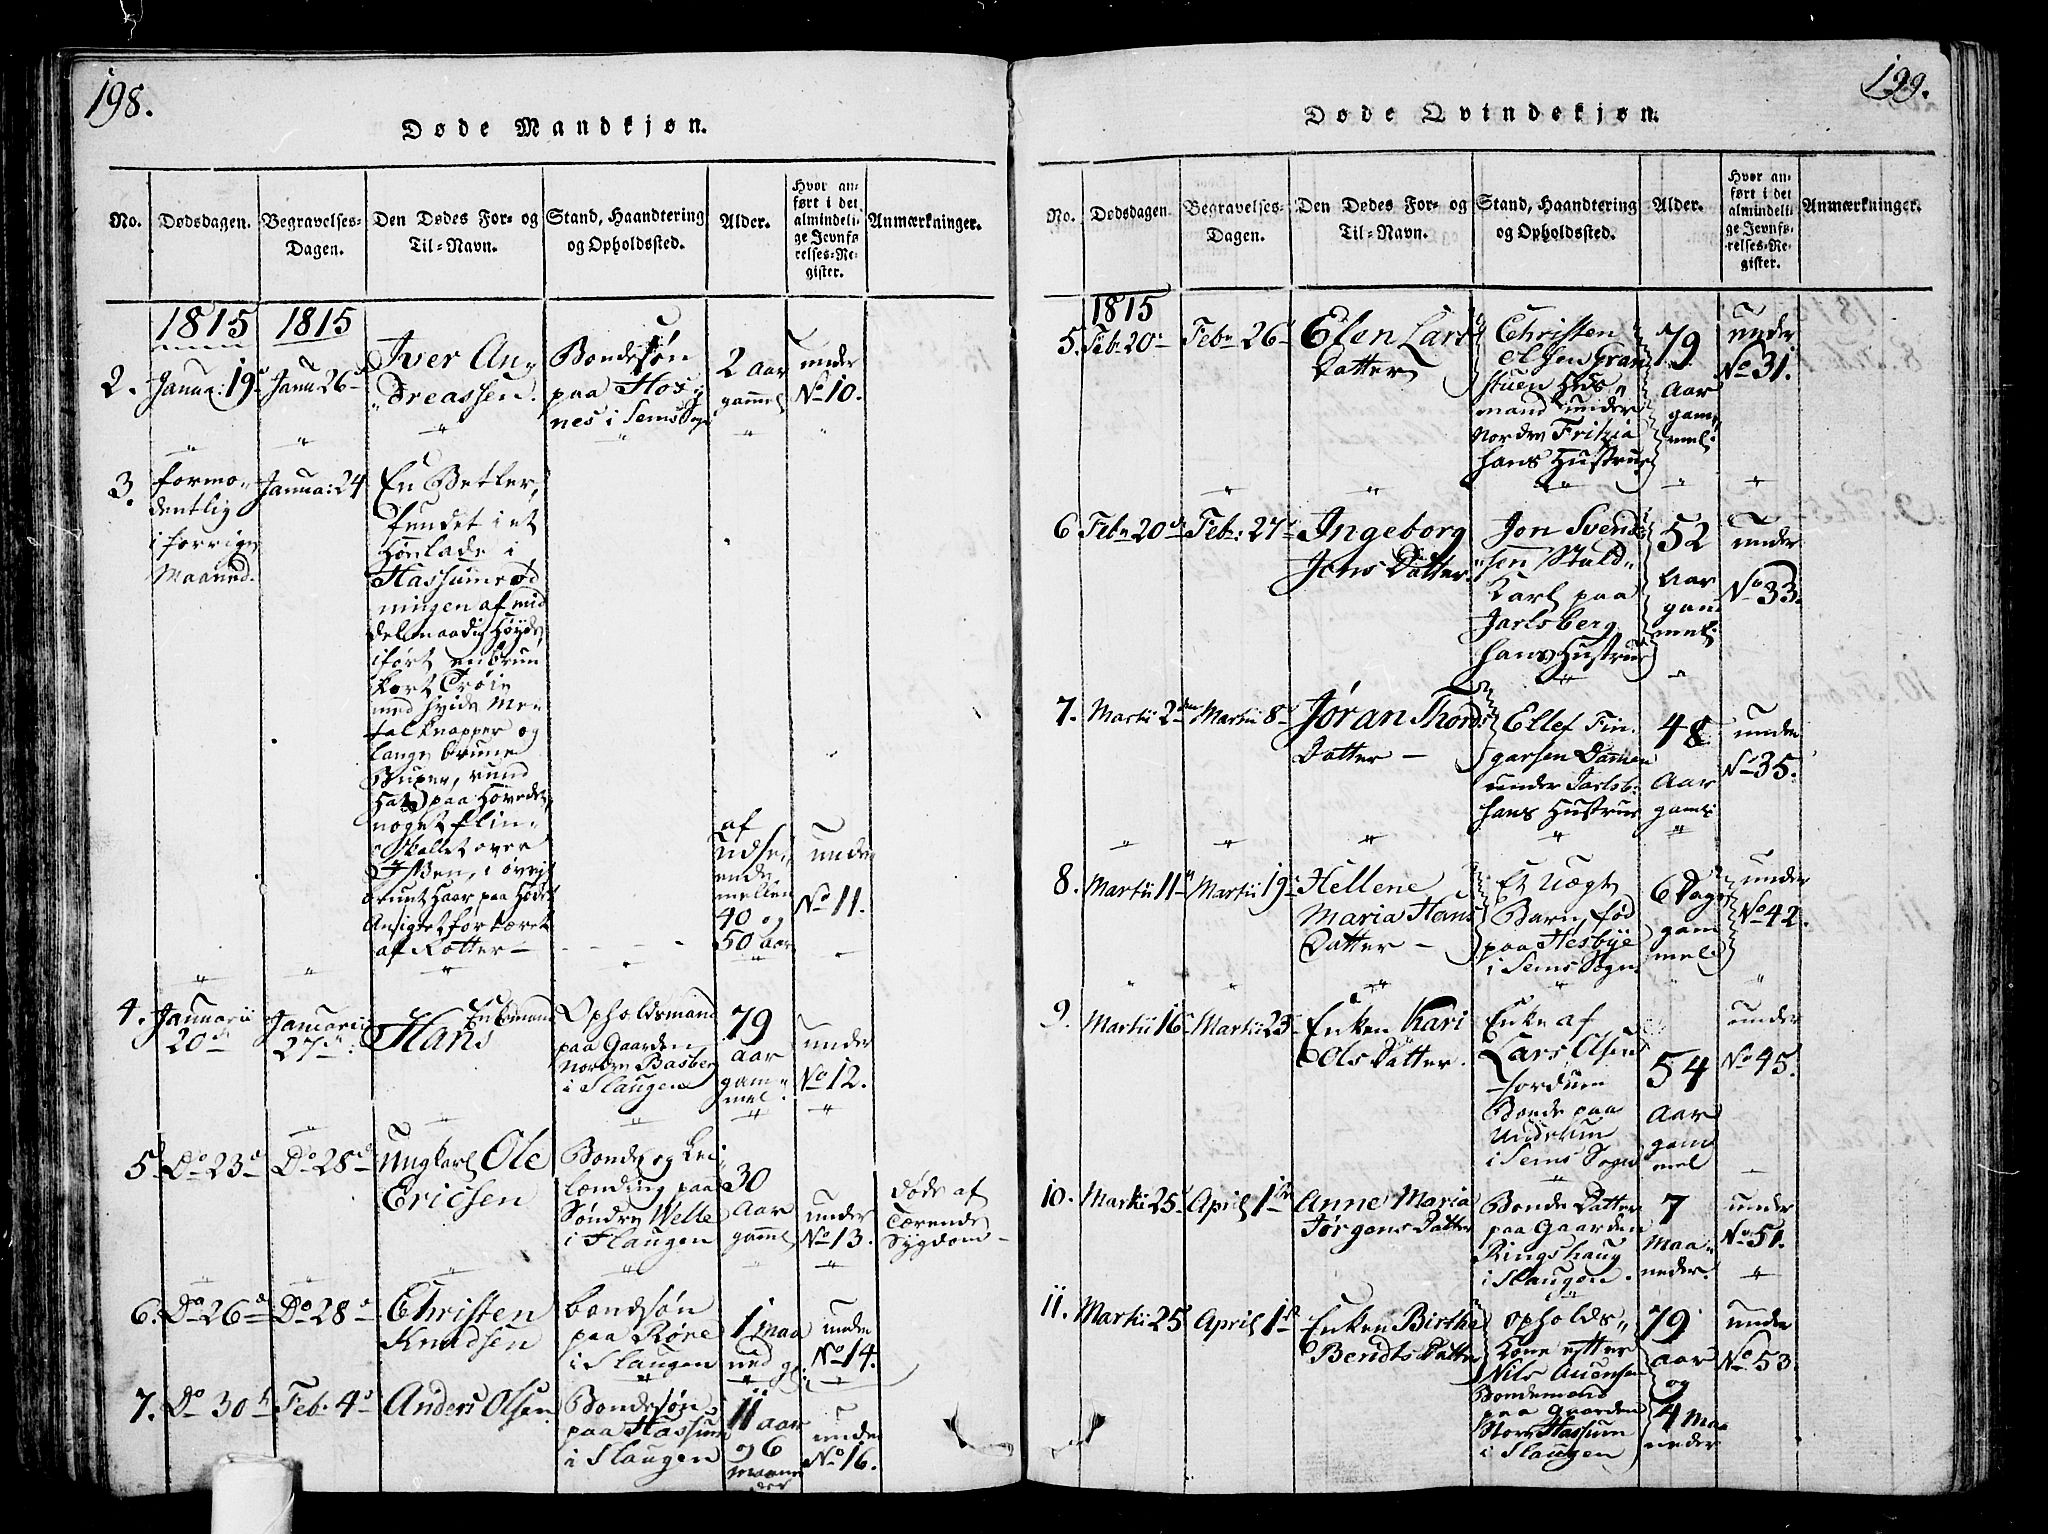 198.
Døde Mandkjøn.
No.
Dødsdagen.
Begravelses-
Dagen.
Den Dødes For- og
Til-Navn.
Stand, Haandtering
og Opholdssted.
Alder.
Hvor an-
ført i det
almindeli-
ge Jevnfø-
relses-Re-
gister.
Anmærkninger.
1815 1815
2. Janua: 19 Janu 26 Iver An-
dreassen. Bondesøn
paa Hos
nes i Sems Sogn 2 aar
gammel under
No 10.
3. formo-
dentlig
i forrige
Maaned. Janua: 24 En Betler,
fundet i et
Høelade i
Hassumrød
ningen af mid
delmaadig Høyde,
iført en brun
kort Trøie
med hvide Me
talknapper og
lange brune
Buxer, rund
Hat paa Hovedet,
noget flin-
skallet over
Issen, i øvrigt
brunt Haar paa Hodet
Ansigtet fortæret
af Rotter —
af
Udse-
ende
mellem
40 og
50 aar
under
No 11.
4. Januarii
20 Januarii
27 Enkemand
Hans Opholdsmand
paa Gaarden
Nordre Basberg
i Slaugen 79
aar
gam-
mel. under
No 12.
5 Do 23 Do 28 Ungkarl Ole
Ericsen Bonde og Lei
lænding paa
Søndre Welle
i Slaugen 30
Aar
gammel under
No 13. døde af
Tærende
Sygdom —
6. Do 26 Do 28 Christen
Knudsen bondesøn
paa Røre
i Slaugen 1 maa
ned gl: under
No 14.
7. Do 30 Feb: 4 Anders Olsen Bondesøn
paa Hassum
i Slaugen 11 aar
og 6
maane
der under
No 16.
199.
Døde Qvindekjøn.
No.
Dødsdagen
Begravelses-
Dagen.
Den Dødes For- og
Til-Navn.
Stand, Haandtering
og Opholdssted.
Alder.
Hvor an-
ført i det
almindeli-
ge Jevnfø-
relses-Re-
gister.
Anmærkninger.
1815
5. Feb: 20 Feb: 26 Elen Lars
Datter Christen
Olsen Gran
stuen Huus
mand under
Nordre Fritzia
hans Hustrue 79
Aar
gam
mel: under
No 31.
6 Feb: 20 Feb: 27 Ingeborg
Jons Datter. Jon Svend
sen Stald-
Karl paa
Jarlsberg
hans Hustrue 52
Aar
gam
mel: under
No 33.
7. Martii 2den Martii 8 Jøran Thords
Datter — Ellef Fin
garsen Dammen
under Jarlsb:
hans Hustrue 48
Aar
gaml: under
No 35.
8. Martii 11 Martii 19 Hellene
Maria Hans
Datter — Et Uægte
Barn, fød
paa Hesbye
i Sems Sogn 6 Dage
gam
mel under
No 42.
9. Martii 16 Martii 25 Enken Kari
Ols Datter. Enke af
Lars Olsen
fordum
Bonde paa
Undrum
i Sems Sogn 54
Aar
gam
mel under
No 45.
10. Martii 25 April 1ste Anne Maria
Jørgens Datter Bonde Datter
paa Gaarden
Ringshaug
i Slaugen. 7
Maa-
neder. under
No 51.
11. Martii 25 April 1ste Enken Birthe
Bendts Datter opholds-
Kone efter
Nils Auensen
Bondemand
paa Gaarden
Nore Hassum
i Slaugen 79
aar
og
4 Maa
neder under
No 53